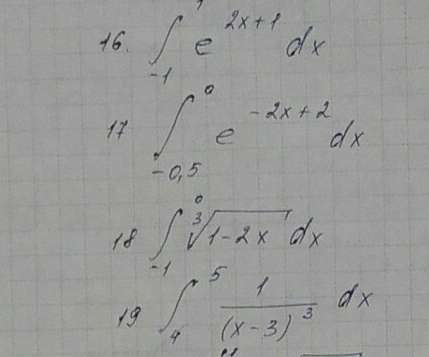 16. ∫₋₁ e^(2x+1) dx
17 ∫₋₀,₅⁰ e^(-2x+2) dx
18 ∫₋₁⁰ ∛(1-2x) dx
19 ∫₄⁵ 1/(x-3)³ dx